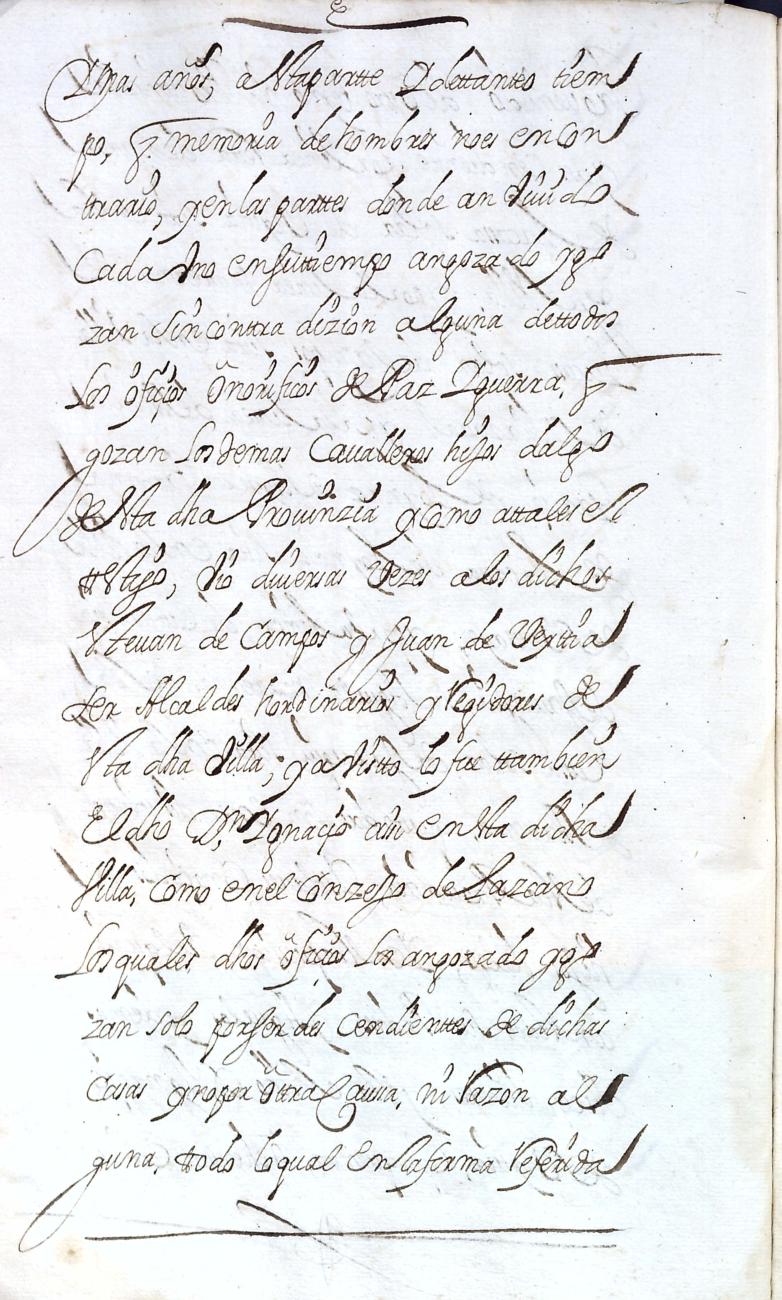 Y mas años, a estapartte Y dettantto tiem
po, q̃. memoria de hombres noes en Con
ttrario, y en las parttes donde an Viuido
Cada Vno ensu ttiempo angozado ygo
zan sin contra dizion alguna dettodos
Los ofiçios onorificos de Paz Y guerra, q̃
gozan los demas Caualleros hijos dalgo
de esta dha Prouinzia y como attales el
ttestigo, vio diuersas Vezes a los dichos
esteuan de Campos y Juan de Verttia
ser Alcaldes hordinarios y Regidores de
esta dha Villa, y a Visto lo fue ttambien
El dho Dn. Ygnaçio assi en esta dicha
Villa, Como enel Conzejo de Lazcano
Los quales dhos ofiçios los angozado y go
zan solo por ser des cendienttes de dichas
Casas y no por ottra Caussa, ni Razon al
guna. ttodo lo qual En la forma Referida